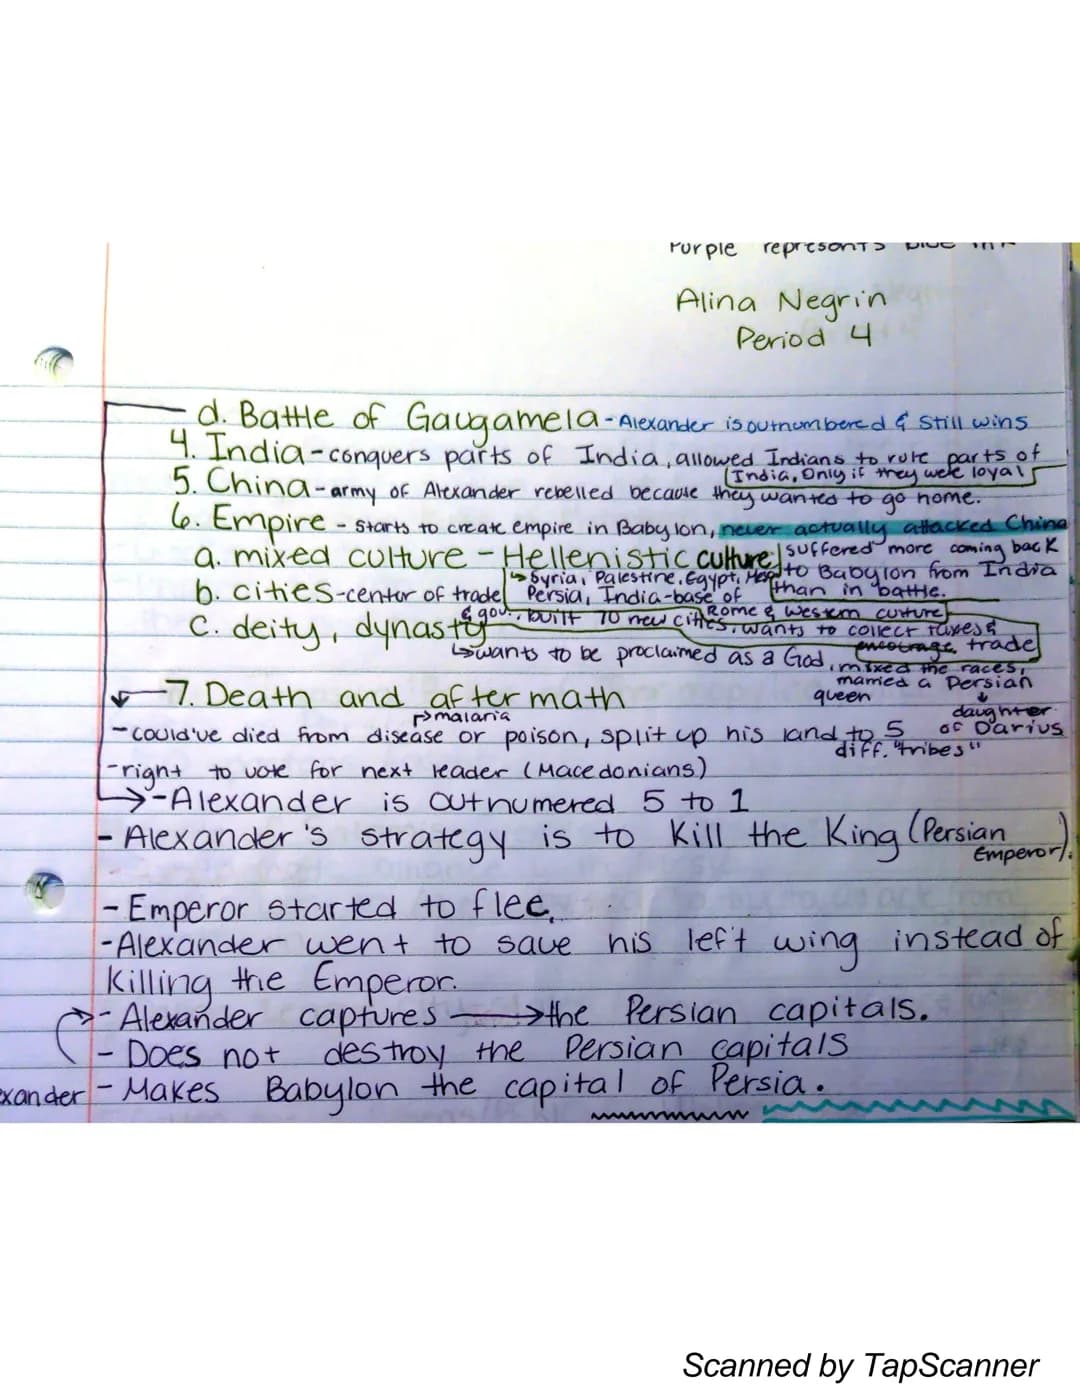 Purple represents blue ink
Alina Negrin
Period 4
d. Battle of Gaugamela - Alexander is outnumbered & still wins
4. India - conquers parts of India, allowed Indians to rule parts of
India, Only if they were loyal
5. China - army of Alexander rebelled because they wanted to go home.
6. Empire - Starts to create empire in Babylon, never actually attacked China
a. mixed culture - Hellenistic culture
suffered more coming back
to Babylon from India
than in battle.
↳ Syria, Palestine, Egypt,
Persia, India - base of
Rome & Western culture
b. cities - center of trade
& gov., built 70 new cities, wants to collect taxes &
encourage trade
c. deity, dynasty
↳ wants to be proclaimed as a God, mixed the races,
married a Persian
queen
↓
daughter
of Darius
7. Death and aftermath
↳ malaria
- could've died from disease or poison, split up his land to 5
diff. "tribes"
- right to vote for next leader (Macedonians)
→ - Alexander is outnumered 5 to 1
- Alexander's strategy is to Kill the King (Persian
Emperor).
- Emperor started to flee.
- Alexander went to save his left wing instead of
Killing the Emperor.
- Alexander captures → the Persian capitals.
- Does not destroy the Persian capitals
exander - Makes Babylon the capital of Persia.
Scanned by TapScanner